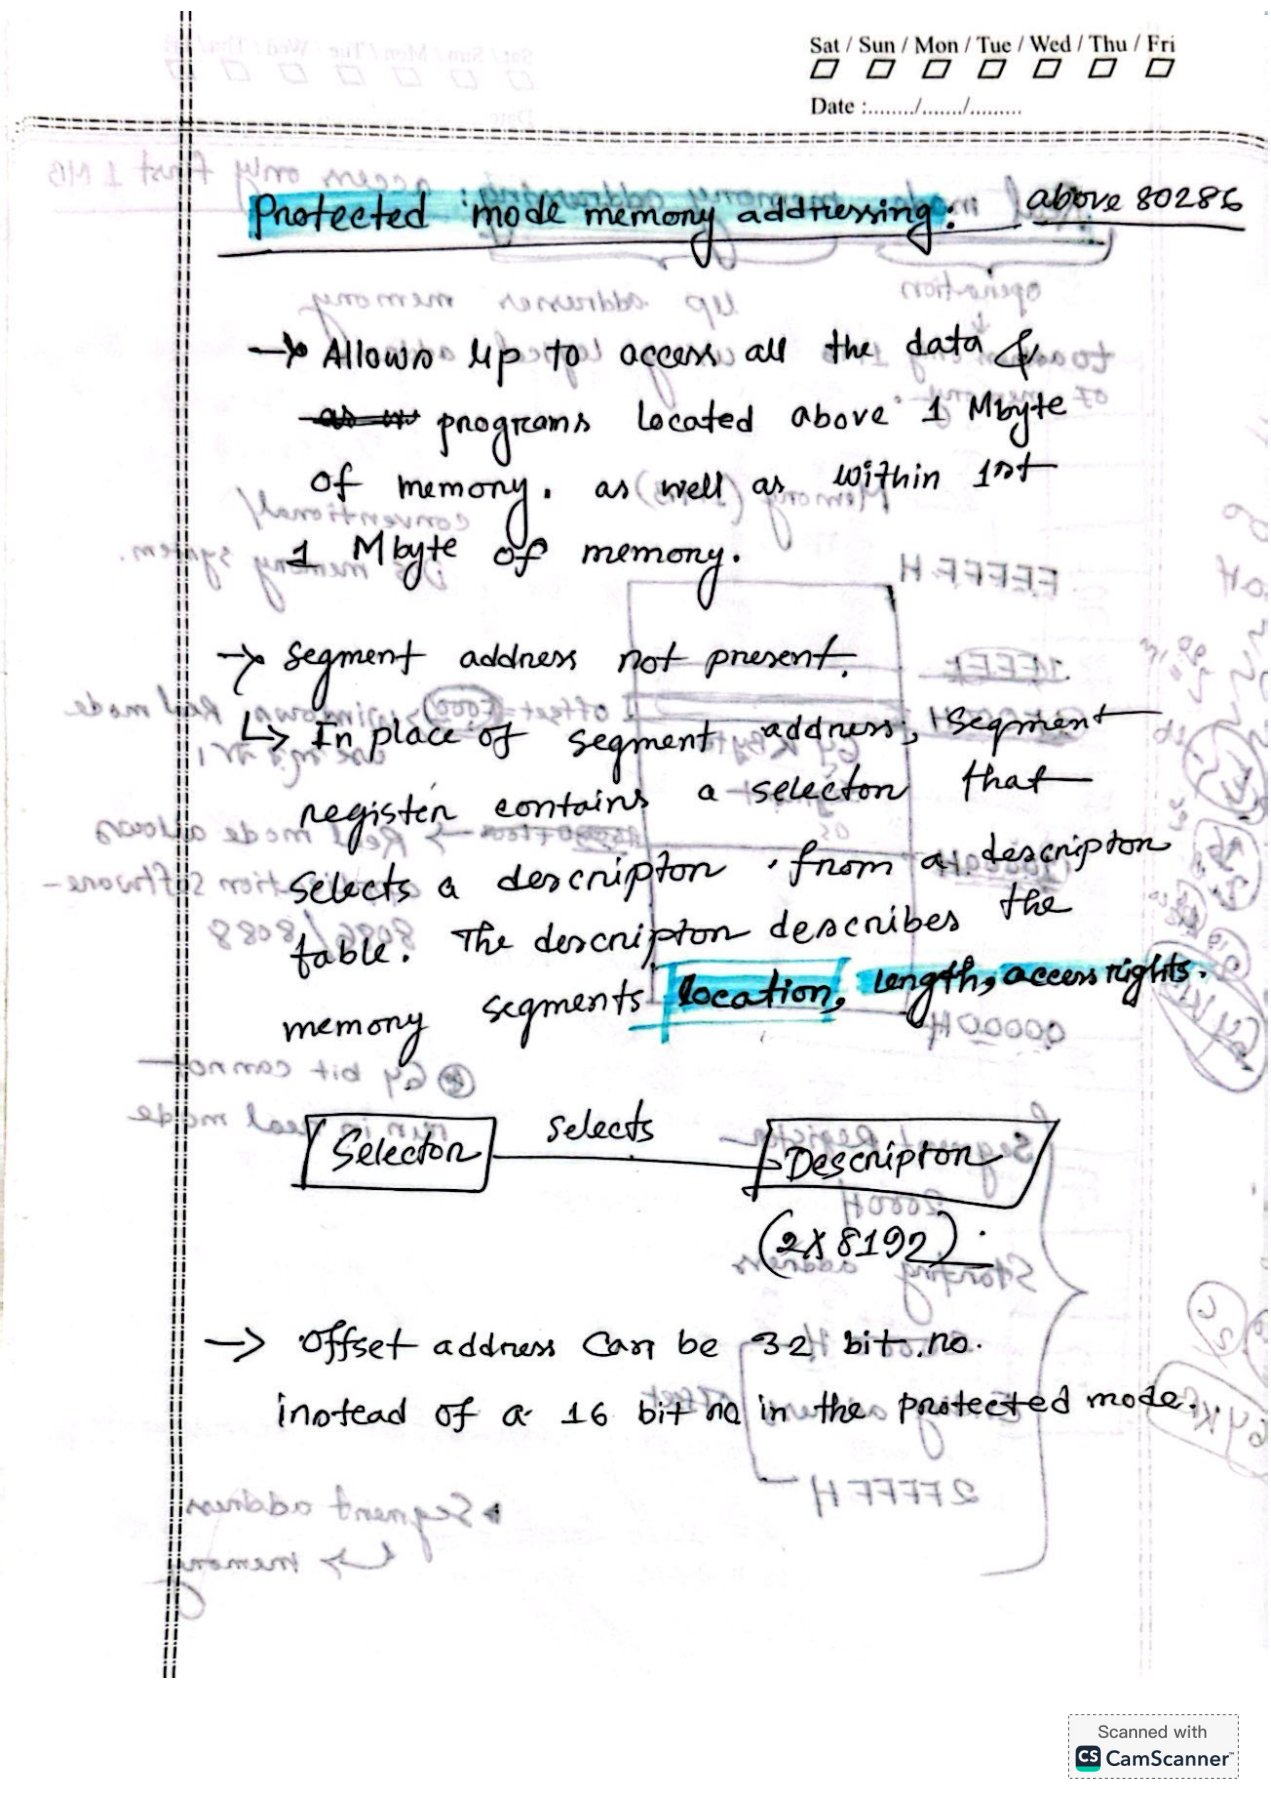 Sat / Sun / Mon / Tue / Wed / Thu / Fri
Date :......../......./.........
Protected mode memory addressing: above 80286
→ Allows up to access all the data &
programs located above 1 Mbyte
of memory. as well as within 1st
1 Mbyte of memory.
→ segment address not present.
↳ In place of segment address, segment
register contains a selector that
selects a descriptor. from a descriptor
table. The descriptor describes the
memory segments location, length, access rights.
Selector selects Descriptor
(2X8192)
→ Offset address can be 32 bit no.
instead of a 16 bit no in the protected mode.
Scanned with
CS CamScanner